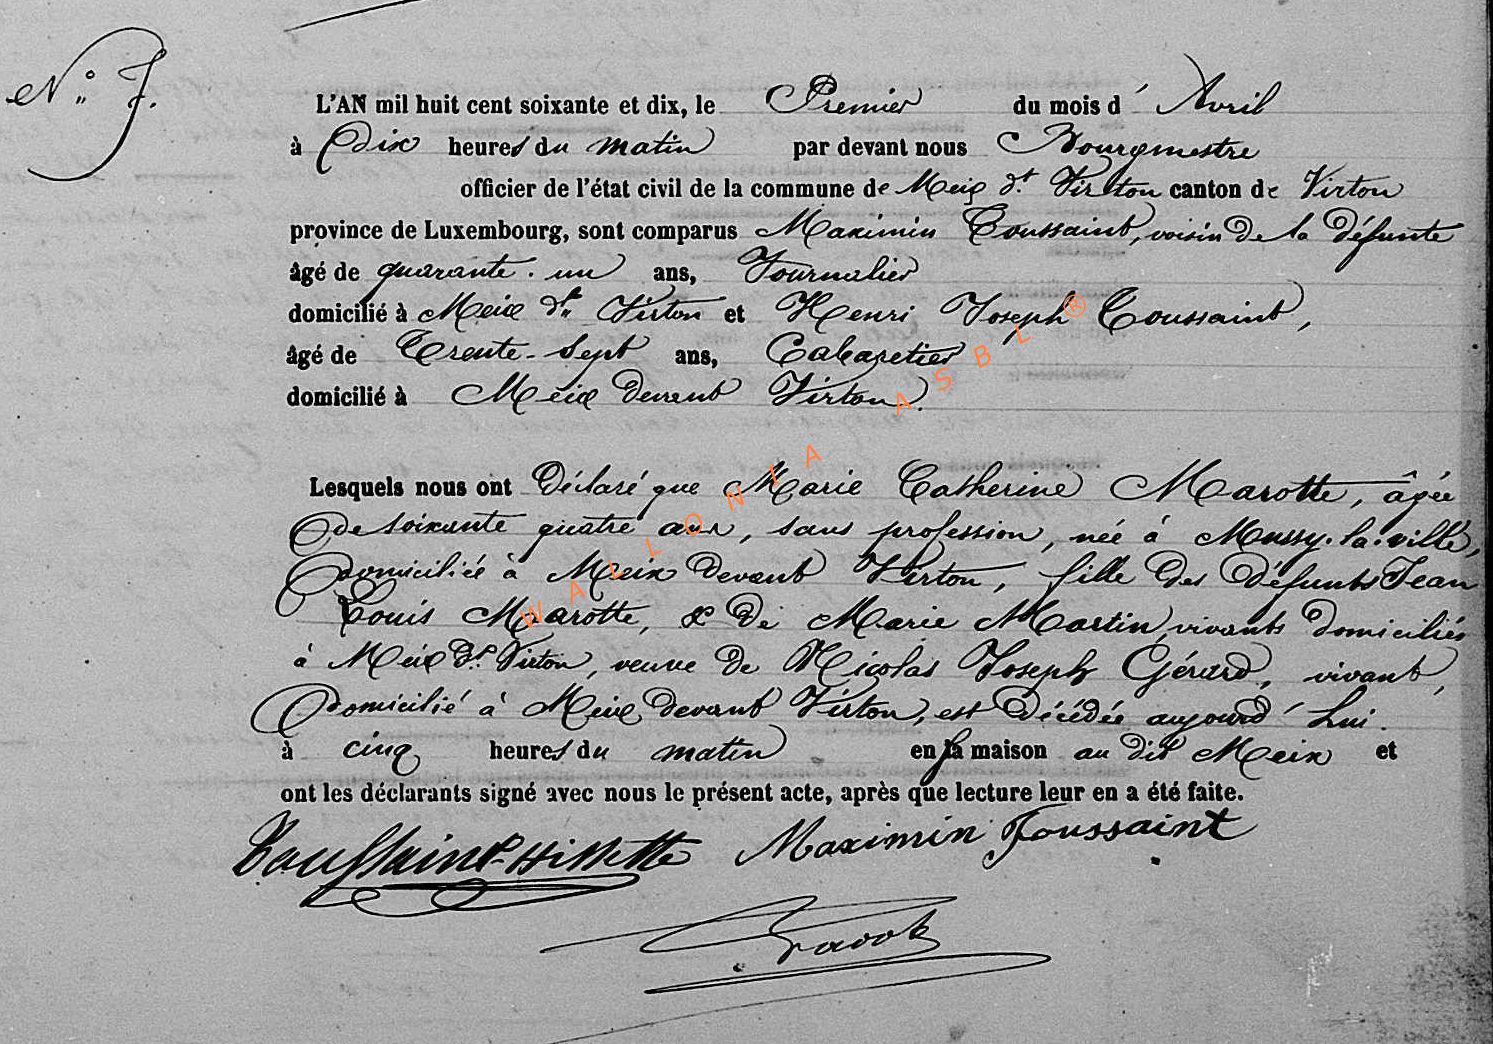 N.° 7.
L'AN mil huit cent soixante et dix, le Premier du mois d' Avril
à Dix heures du matin par devant nous Bourgmestre
officier de l'état civil de la commune de Meix d.t Virton canton de Virton
province de Luxembourg, sont comparus Maximin Toussaint, voisin de la défunte
âgé de quarante-un ans, Journalier
domicilié à Meix d.t Virton et Henri Joseph Toussaint,
âgé de Trente-sept ans, Cabaretier
domicilié à Meix devant Virton.
Lesquels nous ont Déclaré que Marie Catherine Marotte, âgée
de soixante quatre ans, sans profession, née à Mussy-la-ville,
Domiciliée à Meix devant Virton, fille des défunts Jean
Louis Marotte, & de Marie Martin, vivants domiciliés
à Meix d.t Virton, veuve de Nicolas Joseph Gérard, vivant,
Domicilié à Meix devant Virton, est Décédée aujourd'hui.
à cinq heures du matin en sa maison au dit Meix et
ont les déclarants signé avec nous le présent acte, après que lecture leur en a été faite.
Toussaint- Maximin Toussaint
WALLONIA ASBL ®